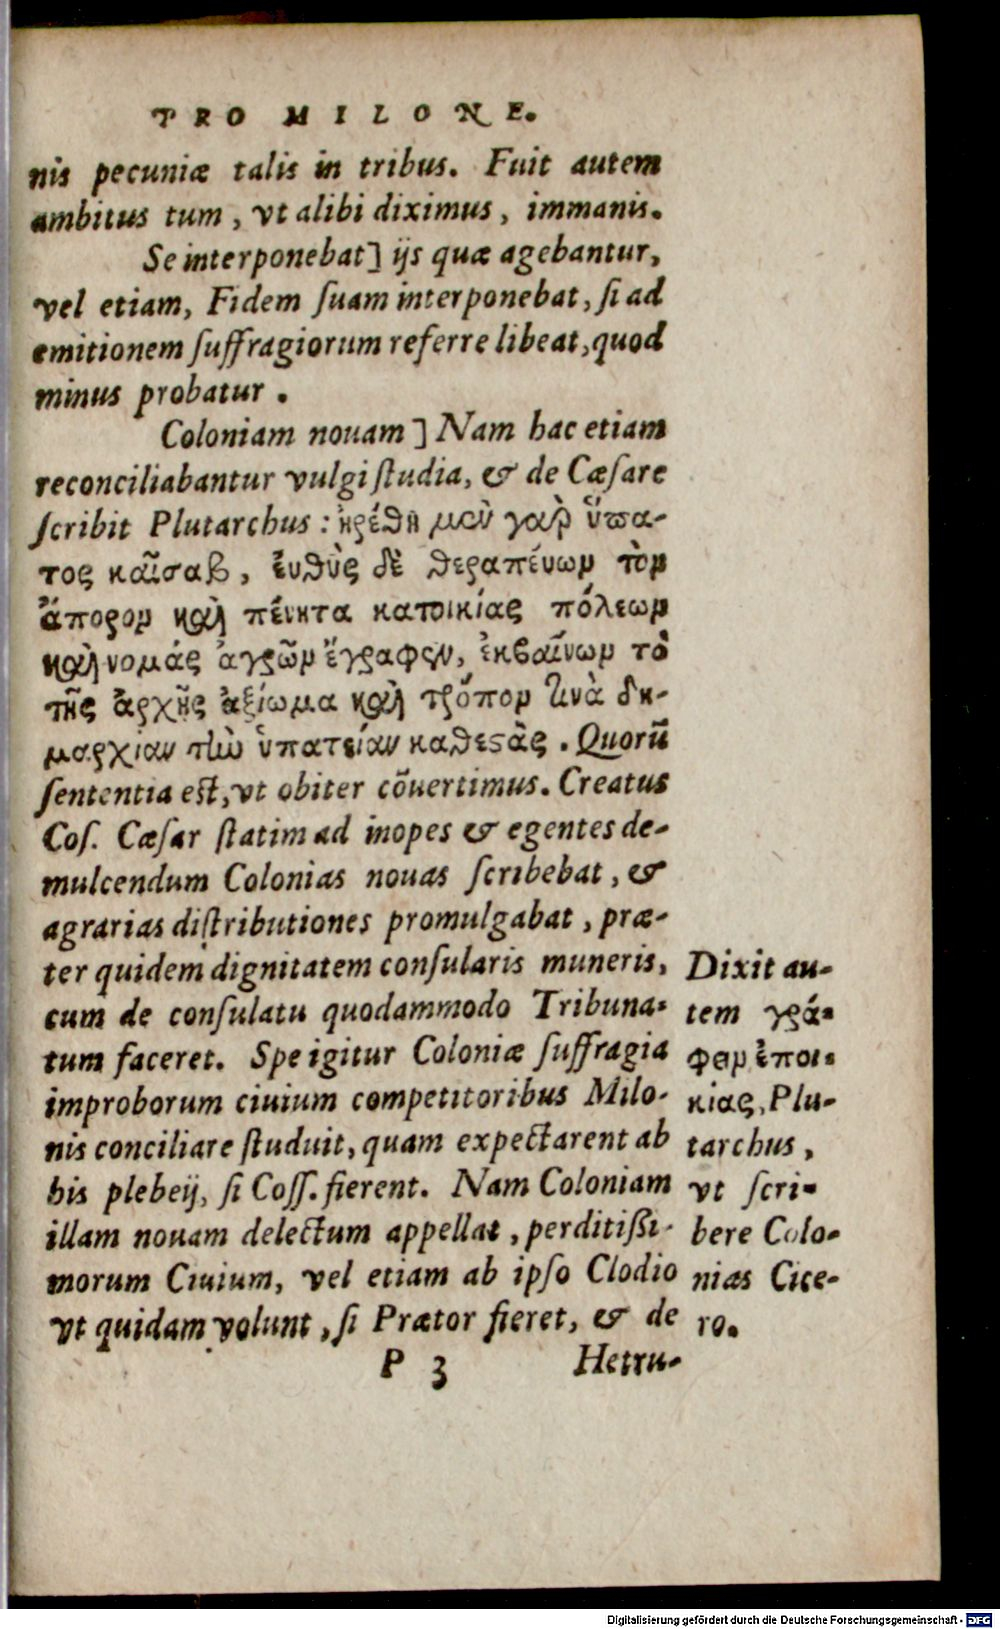 PRO MILONE.
nis pecuniæ talis in tribus. Fuit autem
ambitus tum, vt alibi diximus, immanis.
Se interponebat] ijs quæ agebantur,
vel etiam, Fidem ſuam interponebat, ſi ad
emitionem ſuffragiorum referre libeat, quod
minus probatur.
Coloniam nouam] Nam hac etiam
reconciliabantur vulgi ſtudia, & de Cæſare
ſcribit Plutarchus: ἡρέθη μὲν γαρ ὕπα-
τος καῖσαρ, ἐυθὺς δὲ θεραπέυων τὸν
ἄπορον καὶ πένητα κατοικίας πόλεων
καὶ νομάς ἀγρῶν ἔγραφεν, ἐκβαίνων τὸ
τῆς ἀρχῆς ἀξίωμα καὶ τρόπον τινὰ δη-
μαρχίαν τὴν ὑπατείαν καθεςὰς. Quorũ
ſententia eſt, vt obiter cõuertimus. Creatus
Coſ. Cæſar ſtatim ad inopes & egentes de-
mulcendum Colonias nouas ſcribebat, &
agrarias diſtributiones promulgabat, præ-
ter quidem dignitatem conſularis muneris,
cum de conſulatu quodammodo Tribuna-
tum faceret. Spe igitur Coloniæ ſuffragia
improborum ciuium competitoribus Milo-
nis conciliare ſtuduit, quam expectarent ab
his plebeij, ſi Coſſ. fierent. Nam Coloniam
illam nouam delectum appellat, perditißi-
morum Ciuium, vel etiam ab ipſo Clodio
vt quidam volunt, ſi Prætor fieret, & de
P 3 Hetru-
Dixit au-
tem γρά-
φειν ἐποι-
κίας, Plu-
tarchus,
vt ſcri-
bere Colo-
nias Cice-
ro.
Digitalisierung gefördert durch die Deutsche Forschungsgemeinschaft - DFG